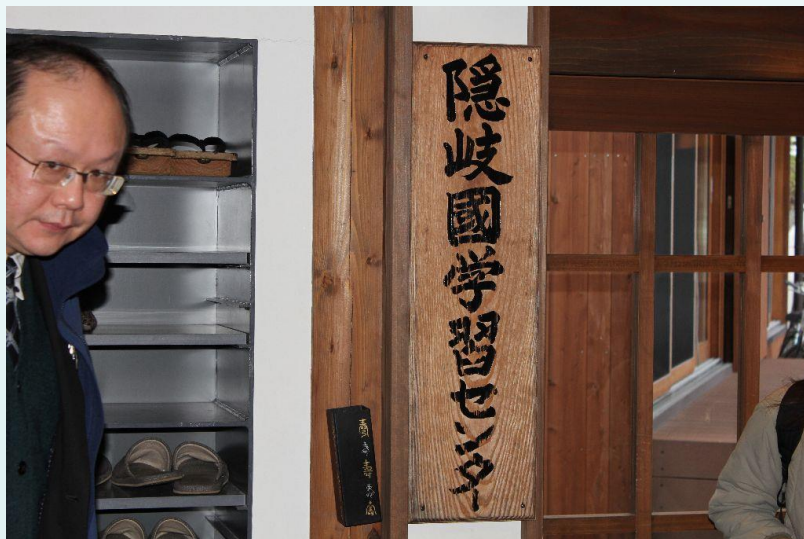 隠岐國学習センター